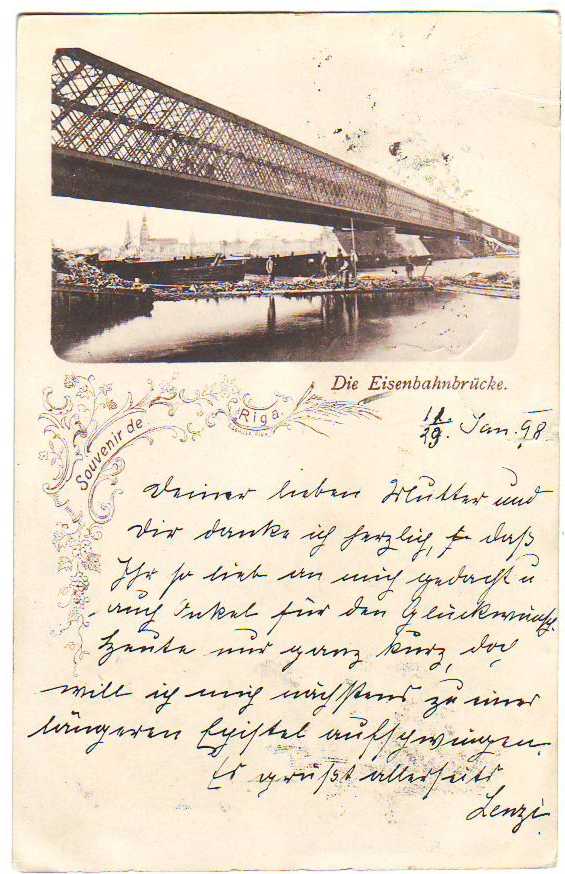 Die Eisenbahnbrücke.
Souvenir de
Riga.
29. Jan. 98
Deiner lieben Mutter und
Dir danke ich herzlich, daß
Ihr so lieb an mich gedacht u
auch Onkel für den Glückwunsch.
Heute nur ganz kurz, doch
will ich mich nächstens zu einer
längeren Epistel aufschwingen.
Es grüßt allerseits
Lenzi.